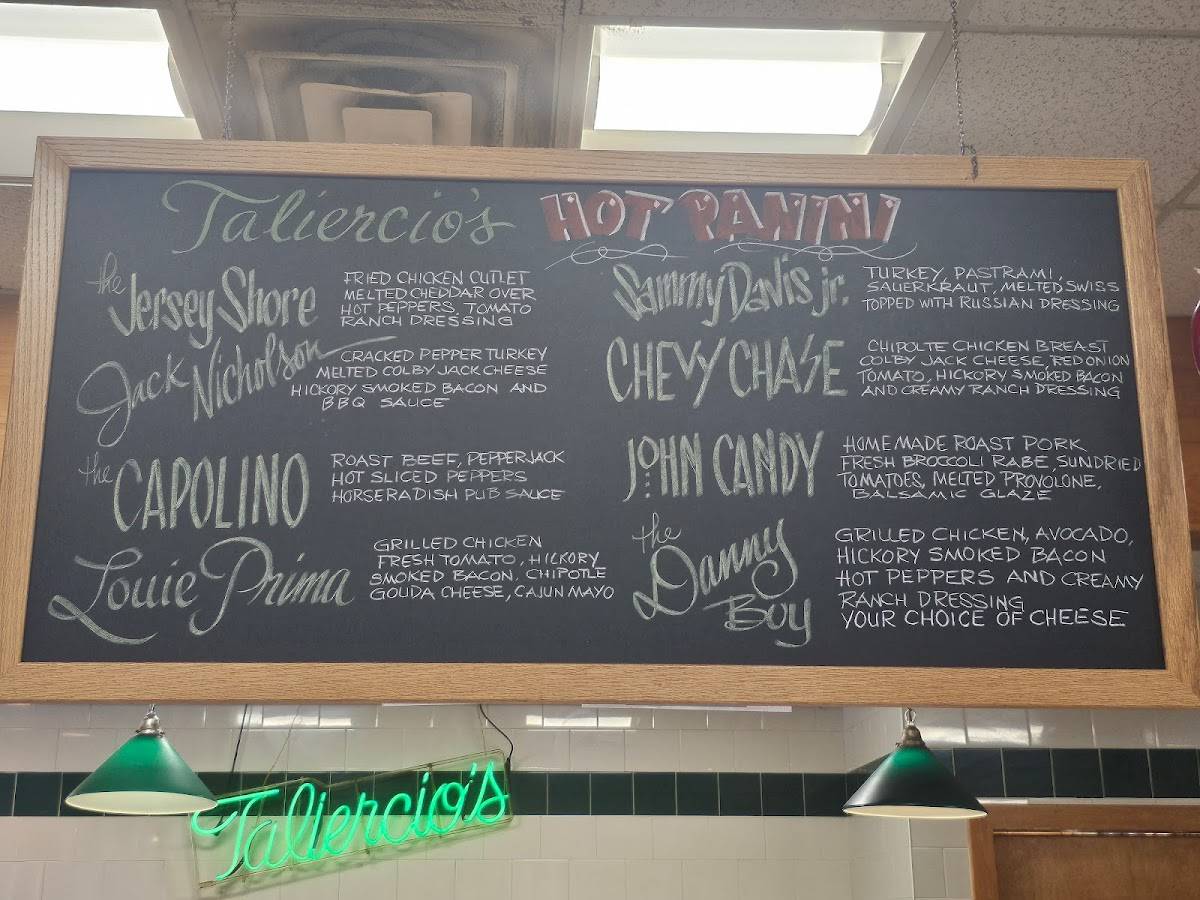 Taliercio's HOT PANINI
the Jersey Shore
FRIED CHICKEN CUTLET
MELTED CHEDDAR OVER
HOT PEPPERS, TOMATO
RANCH DRESSING
Jack Nicholson
CRACKED PEPPER TURKEY
MELTED COLBY JACK CHEESE
HICKORY SMOKED BACON AND
BBQ SAUCE
the CAPOLINO
ROAST BEEF, PEPPERJACK
HOT SLICED PEPPERS
HORSERADISH PUB SAUCE
Louie Prima
GRILLED CHICKEN
FRESH TOMATO, HICKORY
SMOKED BACON, CHIPOTLE
GOUDA CHEESE, CAJUN MAYO
Sammy Davis jr.
TURKEY, PASTRAMI,
SAUERKRAUT, MELTED SWISS
TOPPED WITH RUSSIAN DRESSING
CHEVY CHASE
CHIPOLTE CHICKEN BREAST
COLBY JACK CHEESE, RED ONION
TOMATO, HICKORY SMOKED BACON
AND CREAMY RANCH DRESSING
JOHN CANDY
HOMEMADE ROAST PORK
FRESH BROCCOLI RABE, SUNDRIED
TOMATOES, MELTED PROVOLONE,
BALSAMIC GLAZE
the Danny Boy
GRILLED CHICKEN, AVOCADO,
HICKORY SMOKED BACON
HOT PEPPERS AND CREAMY
RANCH DRESSING
YOUR CHOICE OF CHEESE
Taliercio's